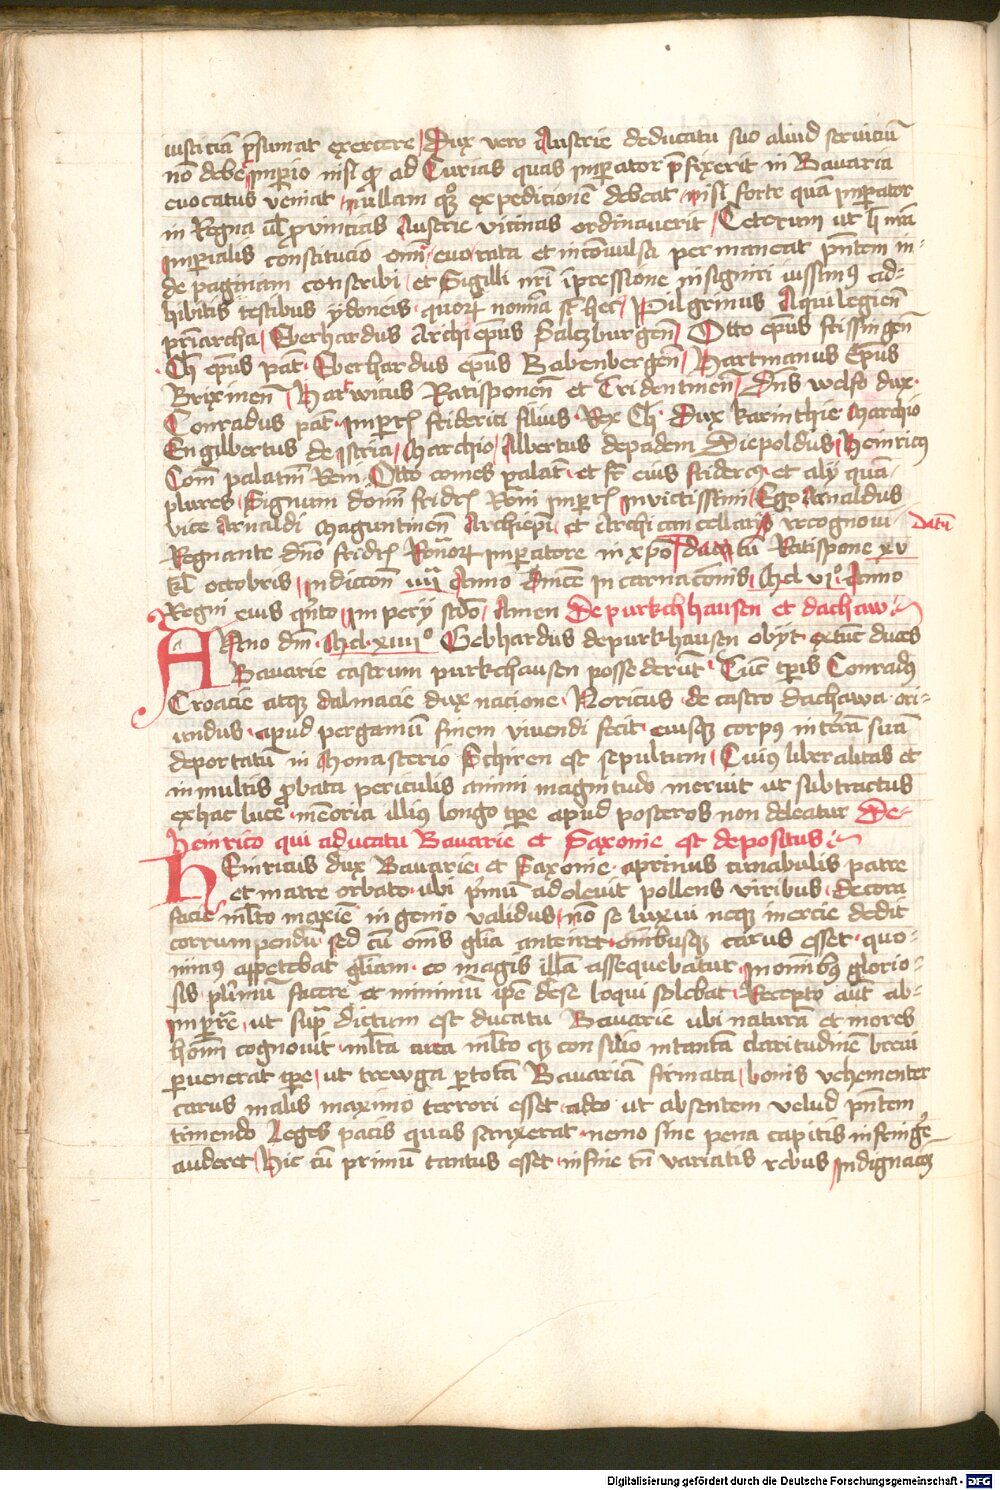 iusticiā p̄sumat exercere Dux vero Austrie deducatu suo aliud seruiciū
nō debet imperio nisi qd ad Curias quas imperator p̄fixerit in Bauaria
euocatus veniat nullam qꝫ expedicionē debeat nisi forte quā imperator
in Regna ul̄ prouincias Austrie vicinas ordinauerit Ceterum ut h nr̄a
imperialis constitucio omī euo rata et inconuulsa permaneat pn̄tem in-
de paginam conscribi et Sigilli nr̄i īpressione insigniri iussimus ad-
hibitis testibus ydoneis quorꝫ noīa st̄ hec Pilgrimus Aquilegien̄
priarcha Eberhardus Archiepus Salczburgen̄ Otto epūs frissingen̄
Ch epūs pat Eberhardus epūs Babenbergen̄ Hartmanus Epūs
Brixinen̄ Hartwicus Ratisponen̄ et Tridentinen̄ Dn̄s welfo dux
Conradus pat imperīs friderici filius Rex Ch Dux karinthie Marchio
Engilbertus de istria Marchio Albertus depadem Diepoldus Heinricus
Com̄ palatin̄ Reni Otto comes palat et fr̄ eius fridercꝰ et alij quā
plures Signum domī fridrī Romi impertī inuictissimi Ego Arnaldus
vice Arnaldi Maguntinen̄ Archiepī et Archicancellarijs recognoui Datū
Regnante dn̄o fridrī Romāorꝫ imperatore in xp̄o datū Ratispone xv
kl octobris indiccōn iiij Anno Dn̄ice incarnacōnis Mcl vjº Anno
Regni eius qn̄to imperij scd̄o Amen De purkchhausen et dachaw
Anno dn̄i Mcl xiiijº Gebhardus depurkhausen obijt extūc duces
Bauarie castrum purkchausen possederūt Tūc tp̄is Conradꝰ
Croacie atqꝫ dalmacie dux nacione Noricus de castro dachawa ori-
undus apud pergamū finem viuendi fecit eiusqꝫ corpus in terrā suā
deportatū in Monasterio Schiren est sepultum Cuius liberalitas et
in multis probata periculis animi magnitudo meruit ut subtractus
exhac luce memoria illius longo tp̄e apud posteros non deleatur De
heinrico qui aducatu Bauarie et Saxonie est depositus
Heinricus dux Bauarie et Saxonie aprimis cunabulis patre
et matre orbato ubi primū adoleuit pollens viribus decora
facie ml̄to maxīe ingenio validus nō se luxui neqꝫ inercie dedit
corrumpendū sed cū om̄s gl̄ia anteiret omībusqꝫ carus esset quo-
minus appetebat gl̄iam eo magis illā assequebatur in omnibꝰ glorio-
sis plimū facere et minimū ip̄e dese loqui solebat Recepto aūt ab
imperē ut supra dictum est ducatu Bauarie ubi naturā et mores
homī cognouit ml̄ta cura ml̄to qꝫ consilio intantā claritudinē breui
peruenerat tp̄e ut trewga ptotā Bauariā firmata bonis vehementer
carus malis maximo terrori esset adeo ut absentem velud pn̄tem
timendo Leges pacis quas sanxerat nemo sine pena capitis infringe
auderet Hic cū primū tantus esset infine tn̄ variatis rebus indignacōꝫ
Digitalisierung gefördert durch die Deutsche Forschungsgemeinschaft - DFG